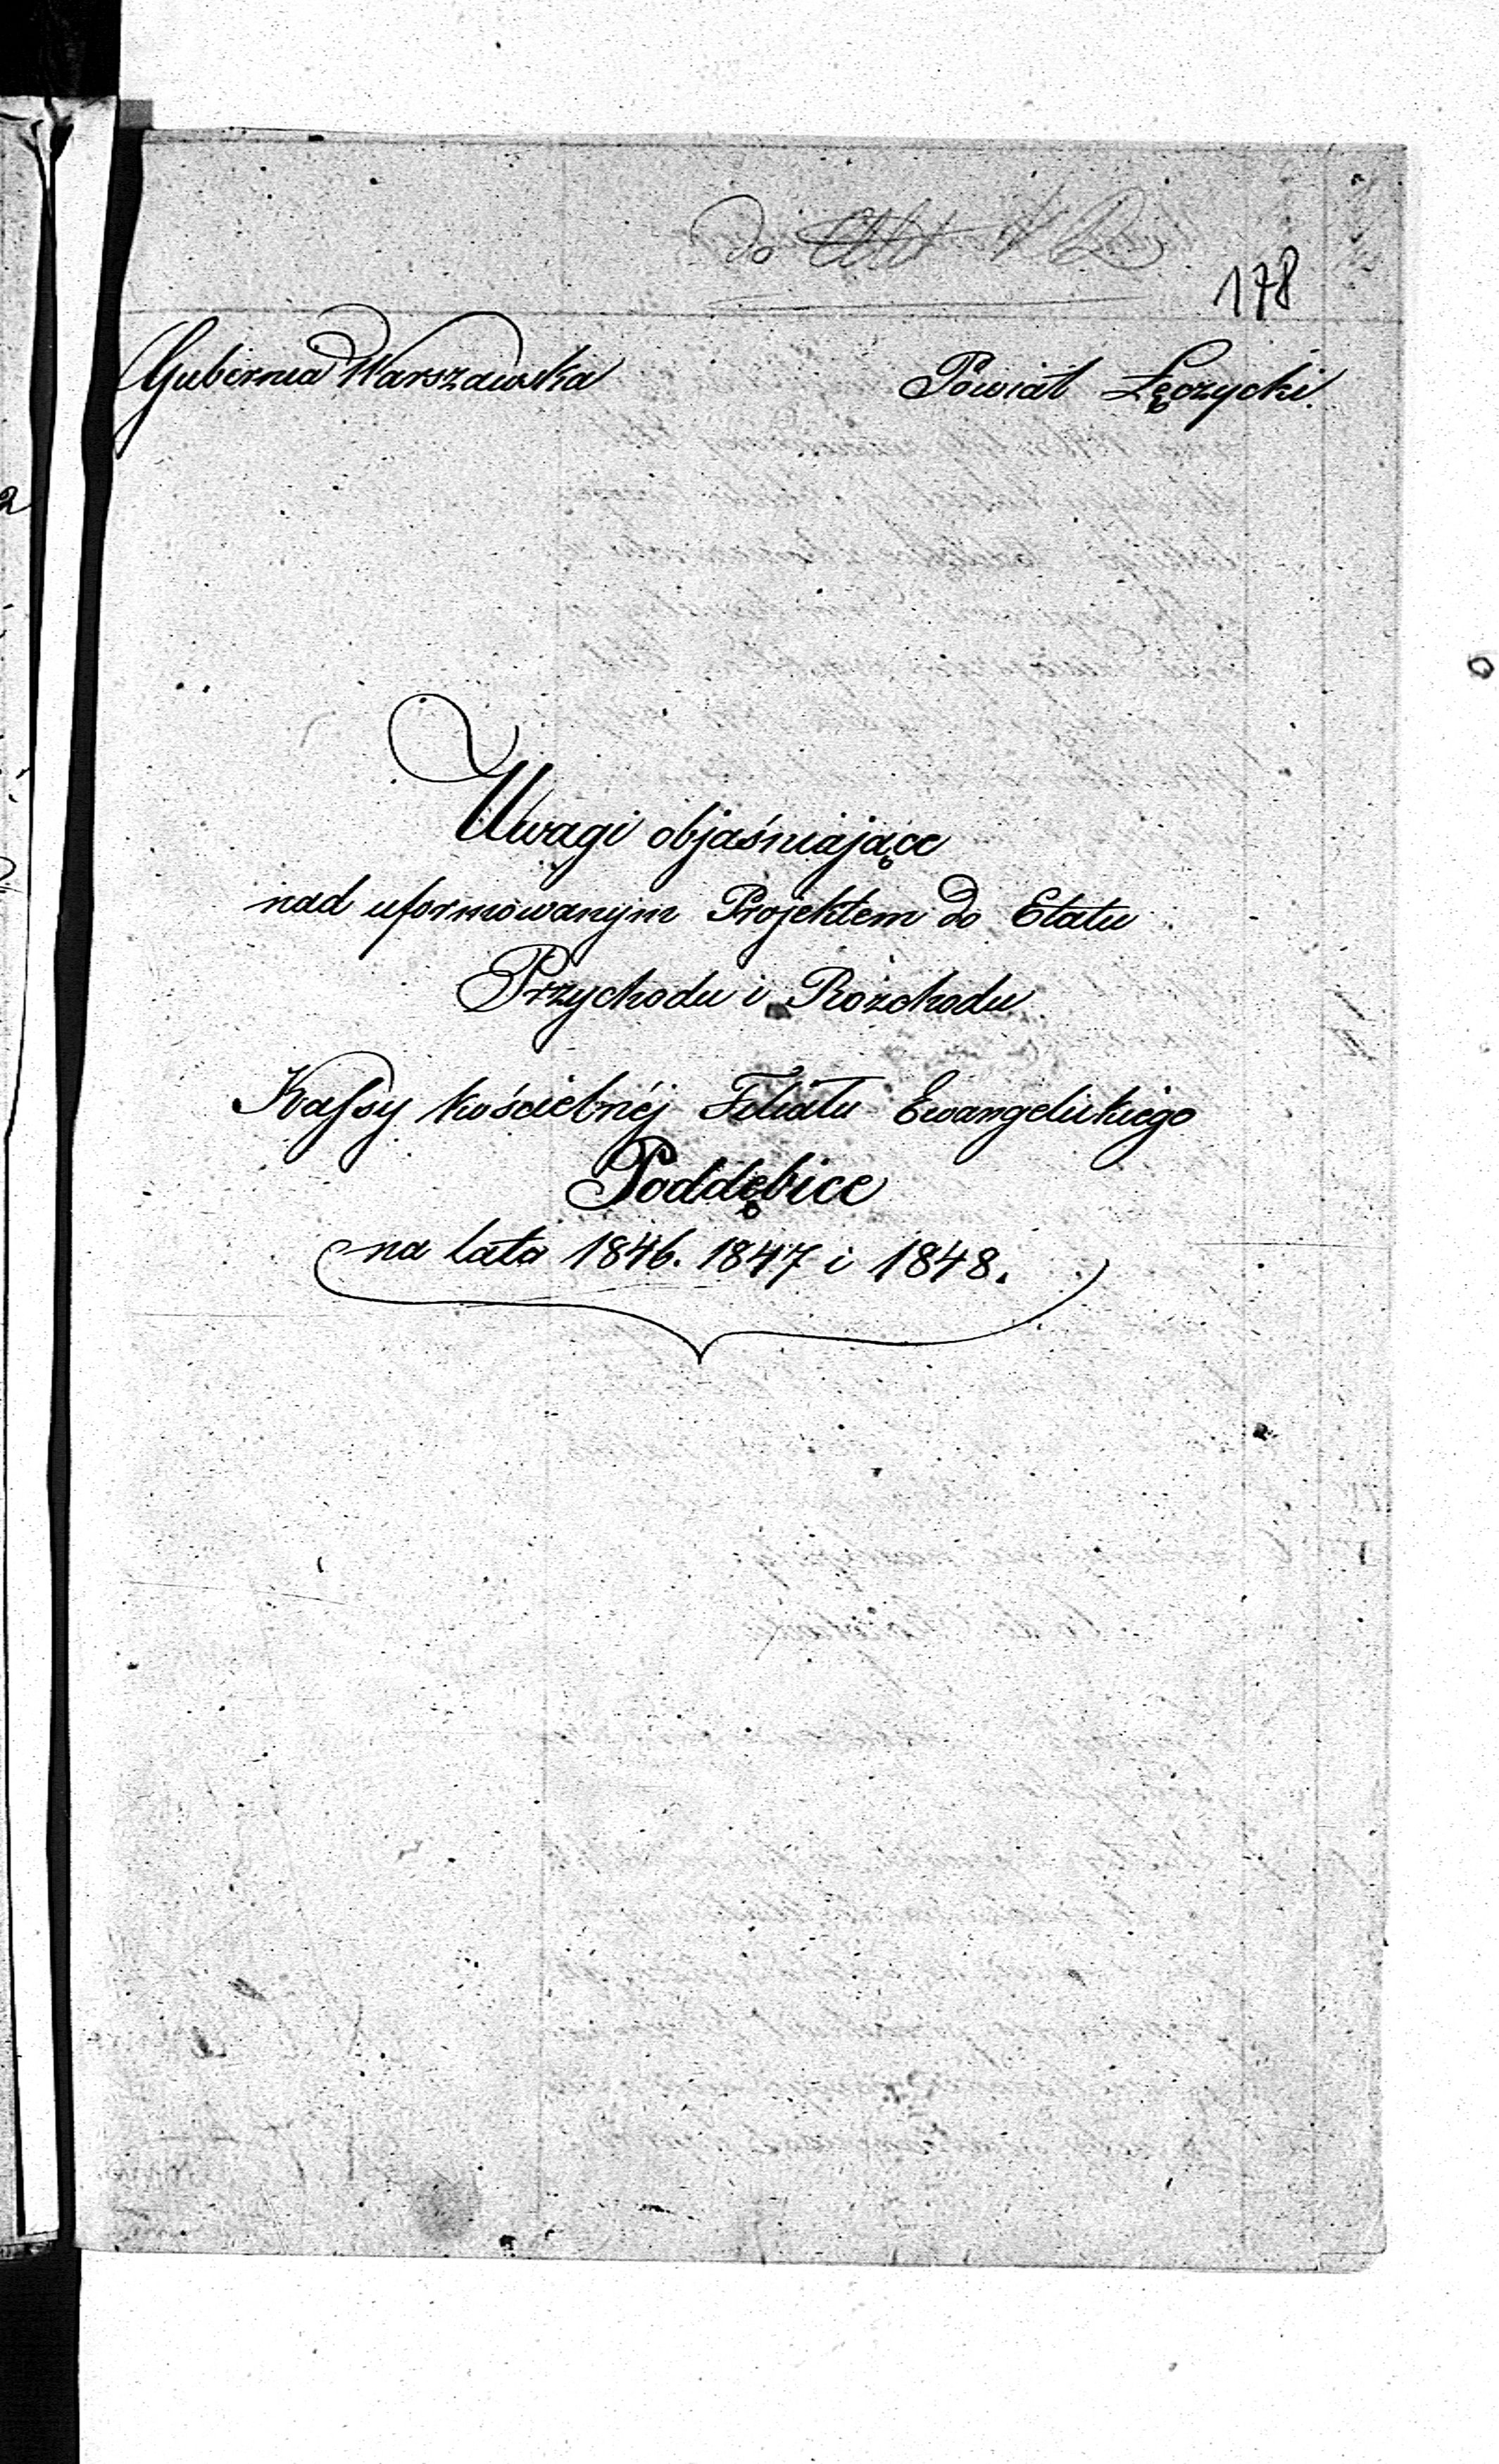 do
178
Gubernia Warszawska Powiat Łęczycki.
Uwagi objaśniające
nad uformowanym Projektem do Etatu
Przychodu i Rozchodu
Kassy kościelnéj Filiału Ewangelickiego
Poddębice
na lata 1846. 1847 i 1848.